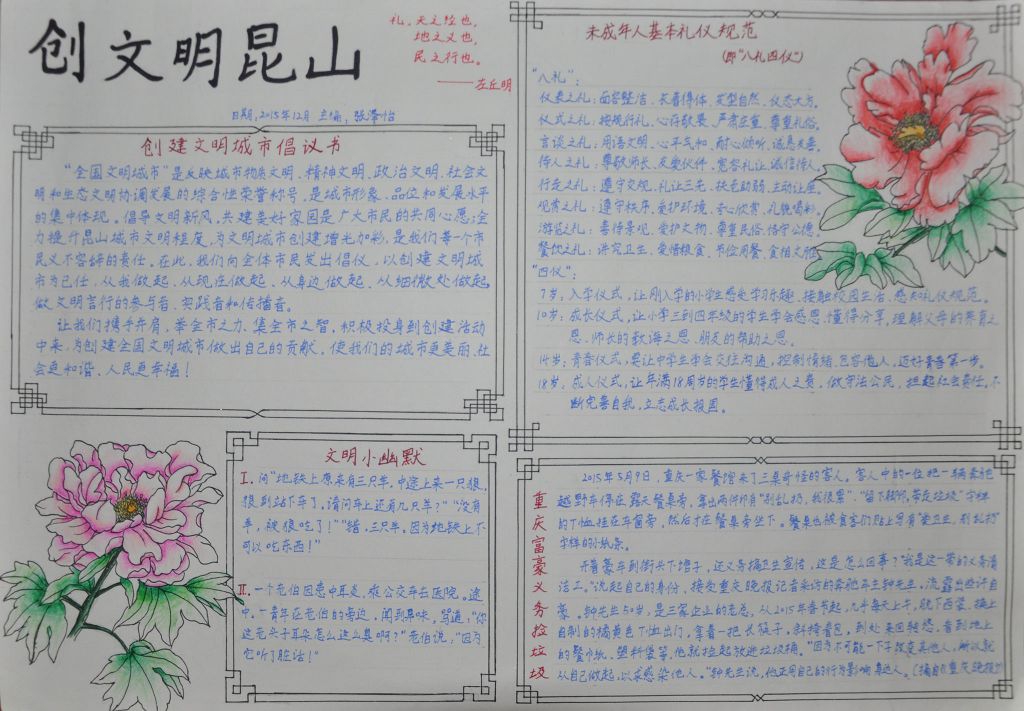 创文明昆山
礼，天之经也，
地之义也，
民之行也。
——左丘明
日期：2015年12月 主编：张馨怡
创建文明城市倡议书
“全国文明城市”是反映城市物质文明、精神文明、政治文明、社会文
明和生态文明协调发展的综合性荣誉称号，是城市形象、品位和发展水平
的集中体现。倡导文明新风，共建美好家园是广大市民的共同心愿；全
力提升昆山城市文明程度，为文明城市创建增光加彩，是我们每一个市
民义不容辞的责任。在此，我们向全体市民发出倡仪，以创建文明城
市为己任，从我做起、从现在做起、从身边做起、从细微处做起。
做文明言行的参与者、实践者和传播者。
让我们携手并肩，举全市之力、集全市之智，积极投身到创建活动
中来，为创建全国文明城市做出自己的贡献，使我们的城市更美丽、社
会更和谐、人民更幸福！
文明小幽默
I. 问“地铁上原来有三只羊，中途上来一只狼，
狼到站下车了，请问车上还有几只羊？”“没有
羊，被狼吃了！”“错，三只羊。因为地铁上不
可以吃东西！”
II. 一个老伯因患中耳炎，乘公交车去医院。途
中，一青年在老伯的旁边，闻到异味，骂道：“你
这老头子耳朵怎么这么臭啊？”老伯说：“因为
它听了脏话！”
未成年人基本礼仪规范
（即“八礼四仪”）
“八礼”：
仪表之礼：面容整洁、衣着得体、发型自然、仪态大方。
仪式之礼：按规行礼、心存敬畏、严肃庄重、尊重礼俗。
言谈之礼：用语文明、心平气和、耐心倾听、诚恳友善。
待人之礼：尊敬师长、友爱伙伴、宽容礼让、诚信待人。
行走之礼：遵守交规、礼让三先、扶老助弱、主动让座。
观赏之礼：遵守秩序、爱护环境、专心欣赏、礼貌喝彩。
游览之礼：善待景观、爱护文物、尊重民俗、恪守公德。
餐饮之礼：讲究卫生、爱惜粮食、节俭用餐、食相文雅。
“四仪”：
7岁：入学仪式，让刚入学的小学生感受学习乐趣、接触校园生活、感知礼仪规范。
10岁：成长仪式，让小学三到四年级的学生学会感恩、懂得分享，理解父母的养育之
恩、师长的教诲之恩、朋友的帮助之恩。
14岁：青春仪式，要让中学生学会交往沟通，控制情绪、包容他人，迈好青春第一步。
18岁：成人仪式，让年满18周岁的学生懂得成人之责、做守法公民，担起社会责任，不
断完善自我，立志成长报国。
重庆富豪义务捡垃圾
2015年5月9日，重庆一家餐馆来了三桌奇怪的客人。客人中的一位把一辆奔驰
越野车停在露天餐桌旁，拿出两件印有“别乱扔，我很重”、“留下脚印，带走垃圾”字样
的T恤挂在车窗旁，然后才在餐桌旁坐下。餐桌也被食客们贴上写有“爱卫生，别乱扔”
字样的小纸条。
开着豪车到街头下馆子，还义务搞卫生宣传，这是怎么回事？“我是这一带的义务清
洁工。”说起自己的身份，接受重庆晚报记者采访的奔驰车主钟先生，流露出些许自
豪。钟先生50岁，是三家企业的老总，从2015年春节起，几乎每天上午，脱下西装，换上
自制的橘黄色T恤出门，拿着一把长筷子，斜挎着包，到处来回转悠，看到地上
的餐巾纸、塑料袋等，他就捡起放进垃圾桶。“因为不可能一下子改变其他人，所以就
从自己做起，以求感染他人。”钟先生说，他正用自己的行为影响身边人。（摘自《重庆晚报》）